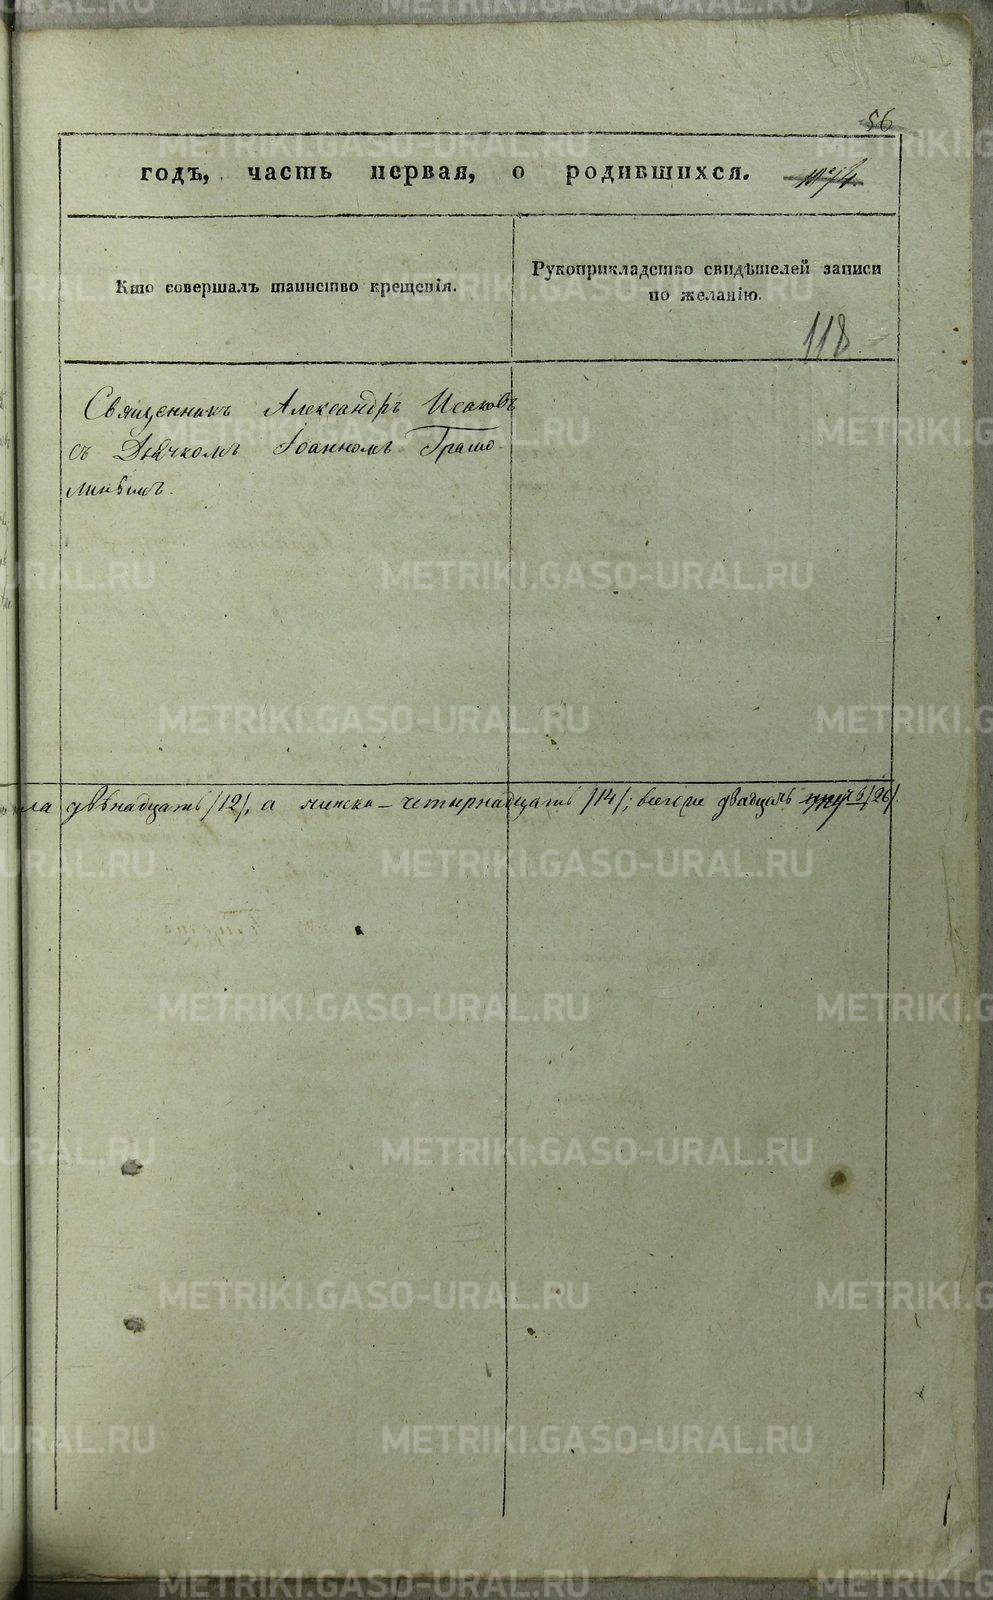 56
годъ, часть первая, о родившихся.
Кто совершалъ таинство крещенія.
Рукоприкладство свидѣтелей записи
по желанію.
118
Священникъ Александръ Исаковъ
съ Дьячкомъ Іоанномъ Грамо-
линымъ.
ла двѣнадцать /12/, а женска – четырнадцать /14/; всего же двадцать /26/.
METRIKI.GASO-URAL.RU